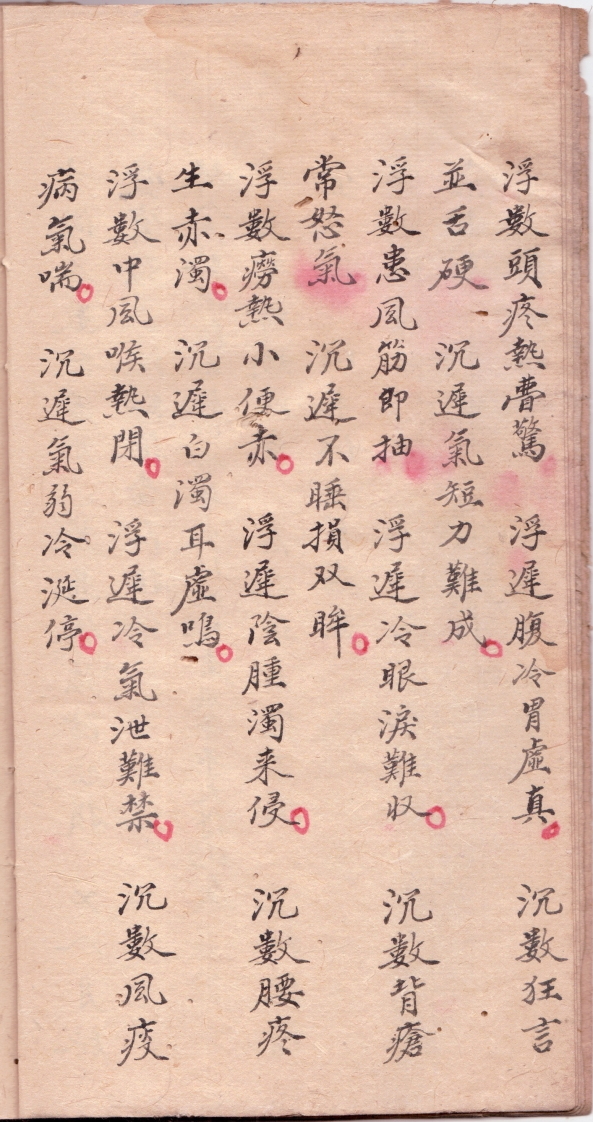 浮數頭疼熱夢驚 浮遲腹冷胃虛真 沉數狂言
並舌硬 沉遲氣短力難成
浮數患風筋即抽 浮遲冷眼淚難収 沉數背瘡
常怒氣 沉遲不睡損双眸
浮數癆熱小便赤 浮遲陰腫濁来侵 沉數腰疼
生赤濁 沉遲白濁耳虛鳴
浮數中風喉熱閉 浮遲冷氣泄難禁 沉數風痰
病氣喘 沉遲氣弱冷涎停